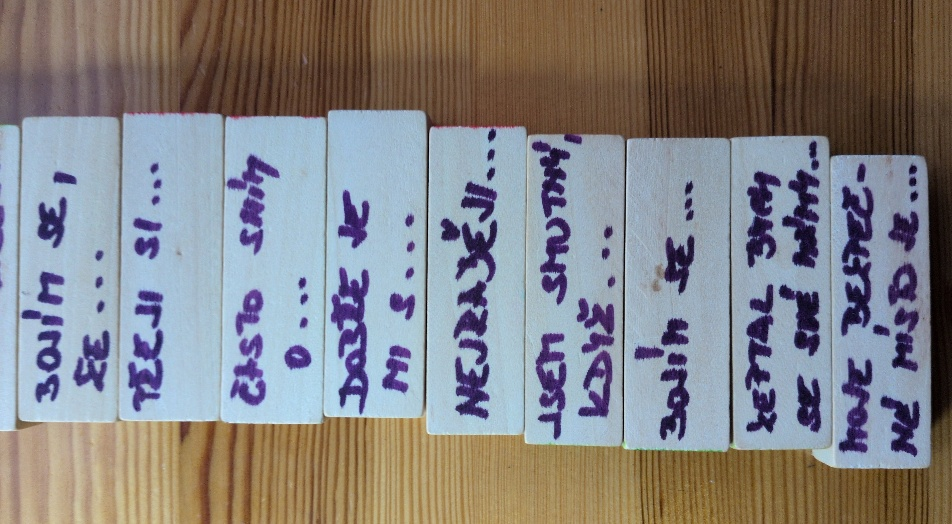 BOJÍM SE,
ŽE...
PŘEJI SI...
ČASTO SNÍM
O...
DOBŘE JE
MI S...
NEJRADĚJI...
JSEM SMUTNÝ,
KDYŽ...
BOJÍM SE...
ZEPTAL BYCH
SE SVÉ MÁMY...
MOJE BEZPEČ-
NÉ MÍSTO JE...